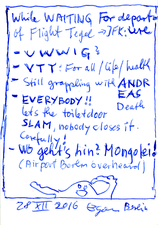 While WAITING For depart
of Flight Tegel → JFK:
- U W W I G ?
- V T T : For all / life / health
- Still grappling with ANDR
EAS
Death
- EVERYBODY!!
lets the toiletdoor
SLAM, nobody closes it.
Carefully!
- Wo geht's hin? Mongolei!
(Airport Berlin overheard)
28 XII 2016 Berlin